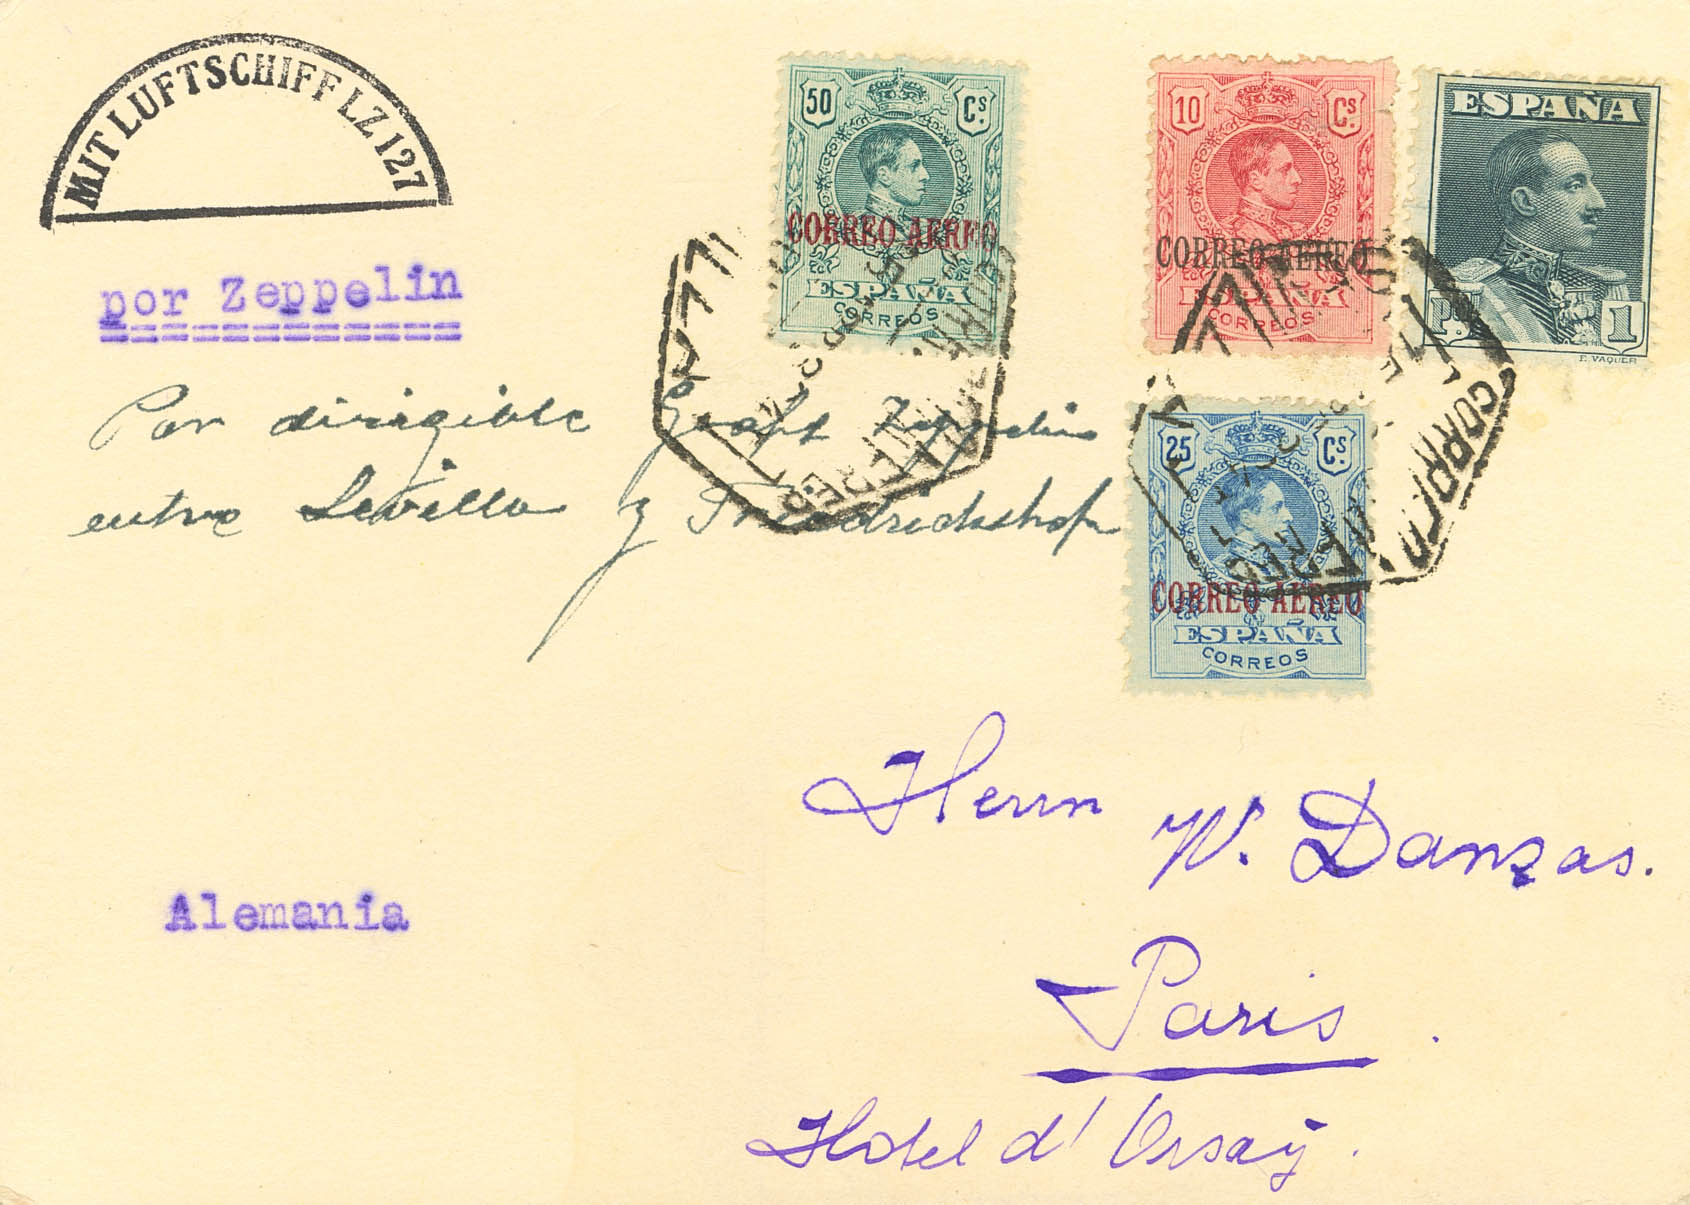 MIT LUFTSCHIFF LZ 127
50 Cs.
CORREO AEREO
ESPAÑA
CORREOS
10 Cs.
CORREO AEREO
ESPAÑA
CORREOS
ESPAÑA
1
E. VAQUER
por Zeppelin
Por dirigible Graff Zeppelin
entre Sevilla y Friedrichshafn
25 Cs.
CORREO AEREO
ESPAÑA
CORREOS
Herrn W. Danzas.
Alemania
Paris.
Hotel d'Orsay.